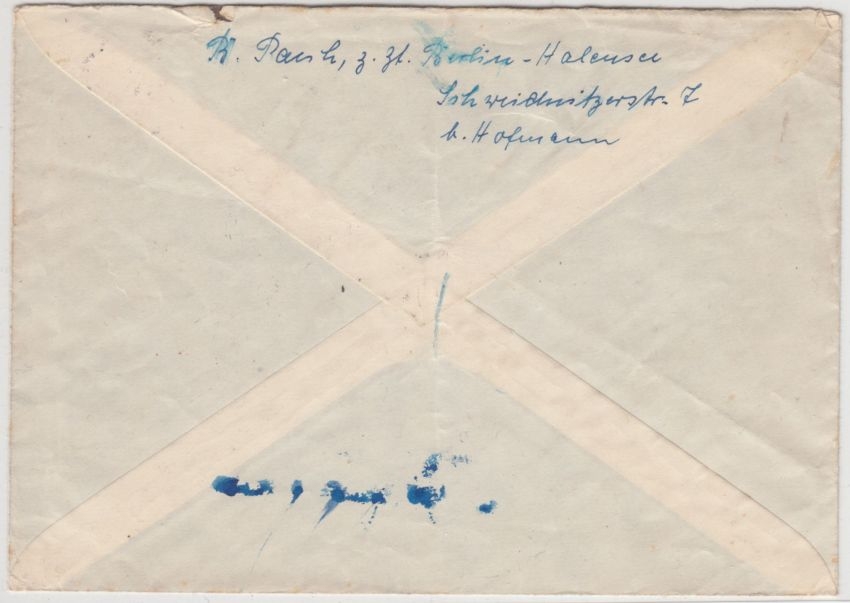 R. Paesh, z. Zt. Berlin-Halensee
Schweidnitzerstr. 7
b. Hofmann